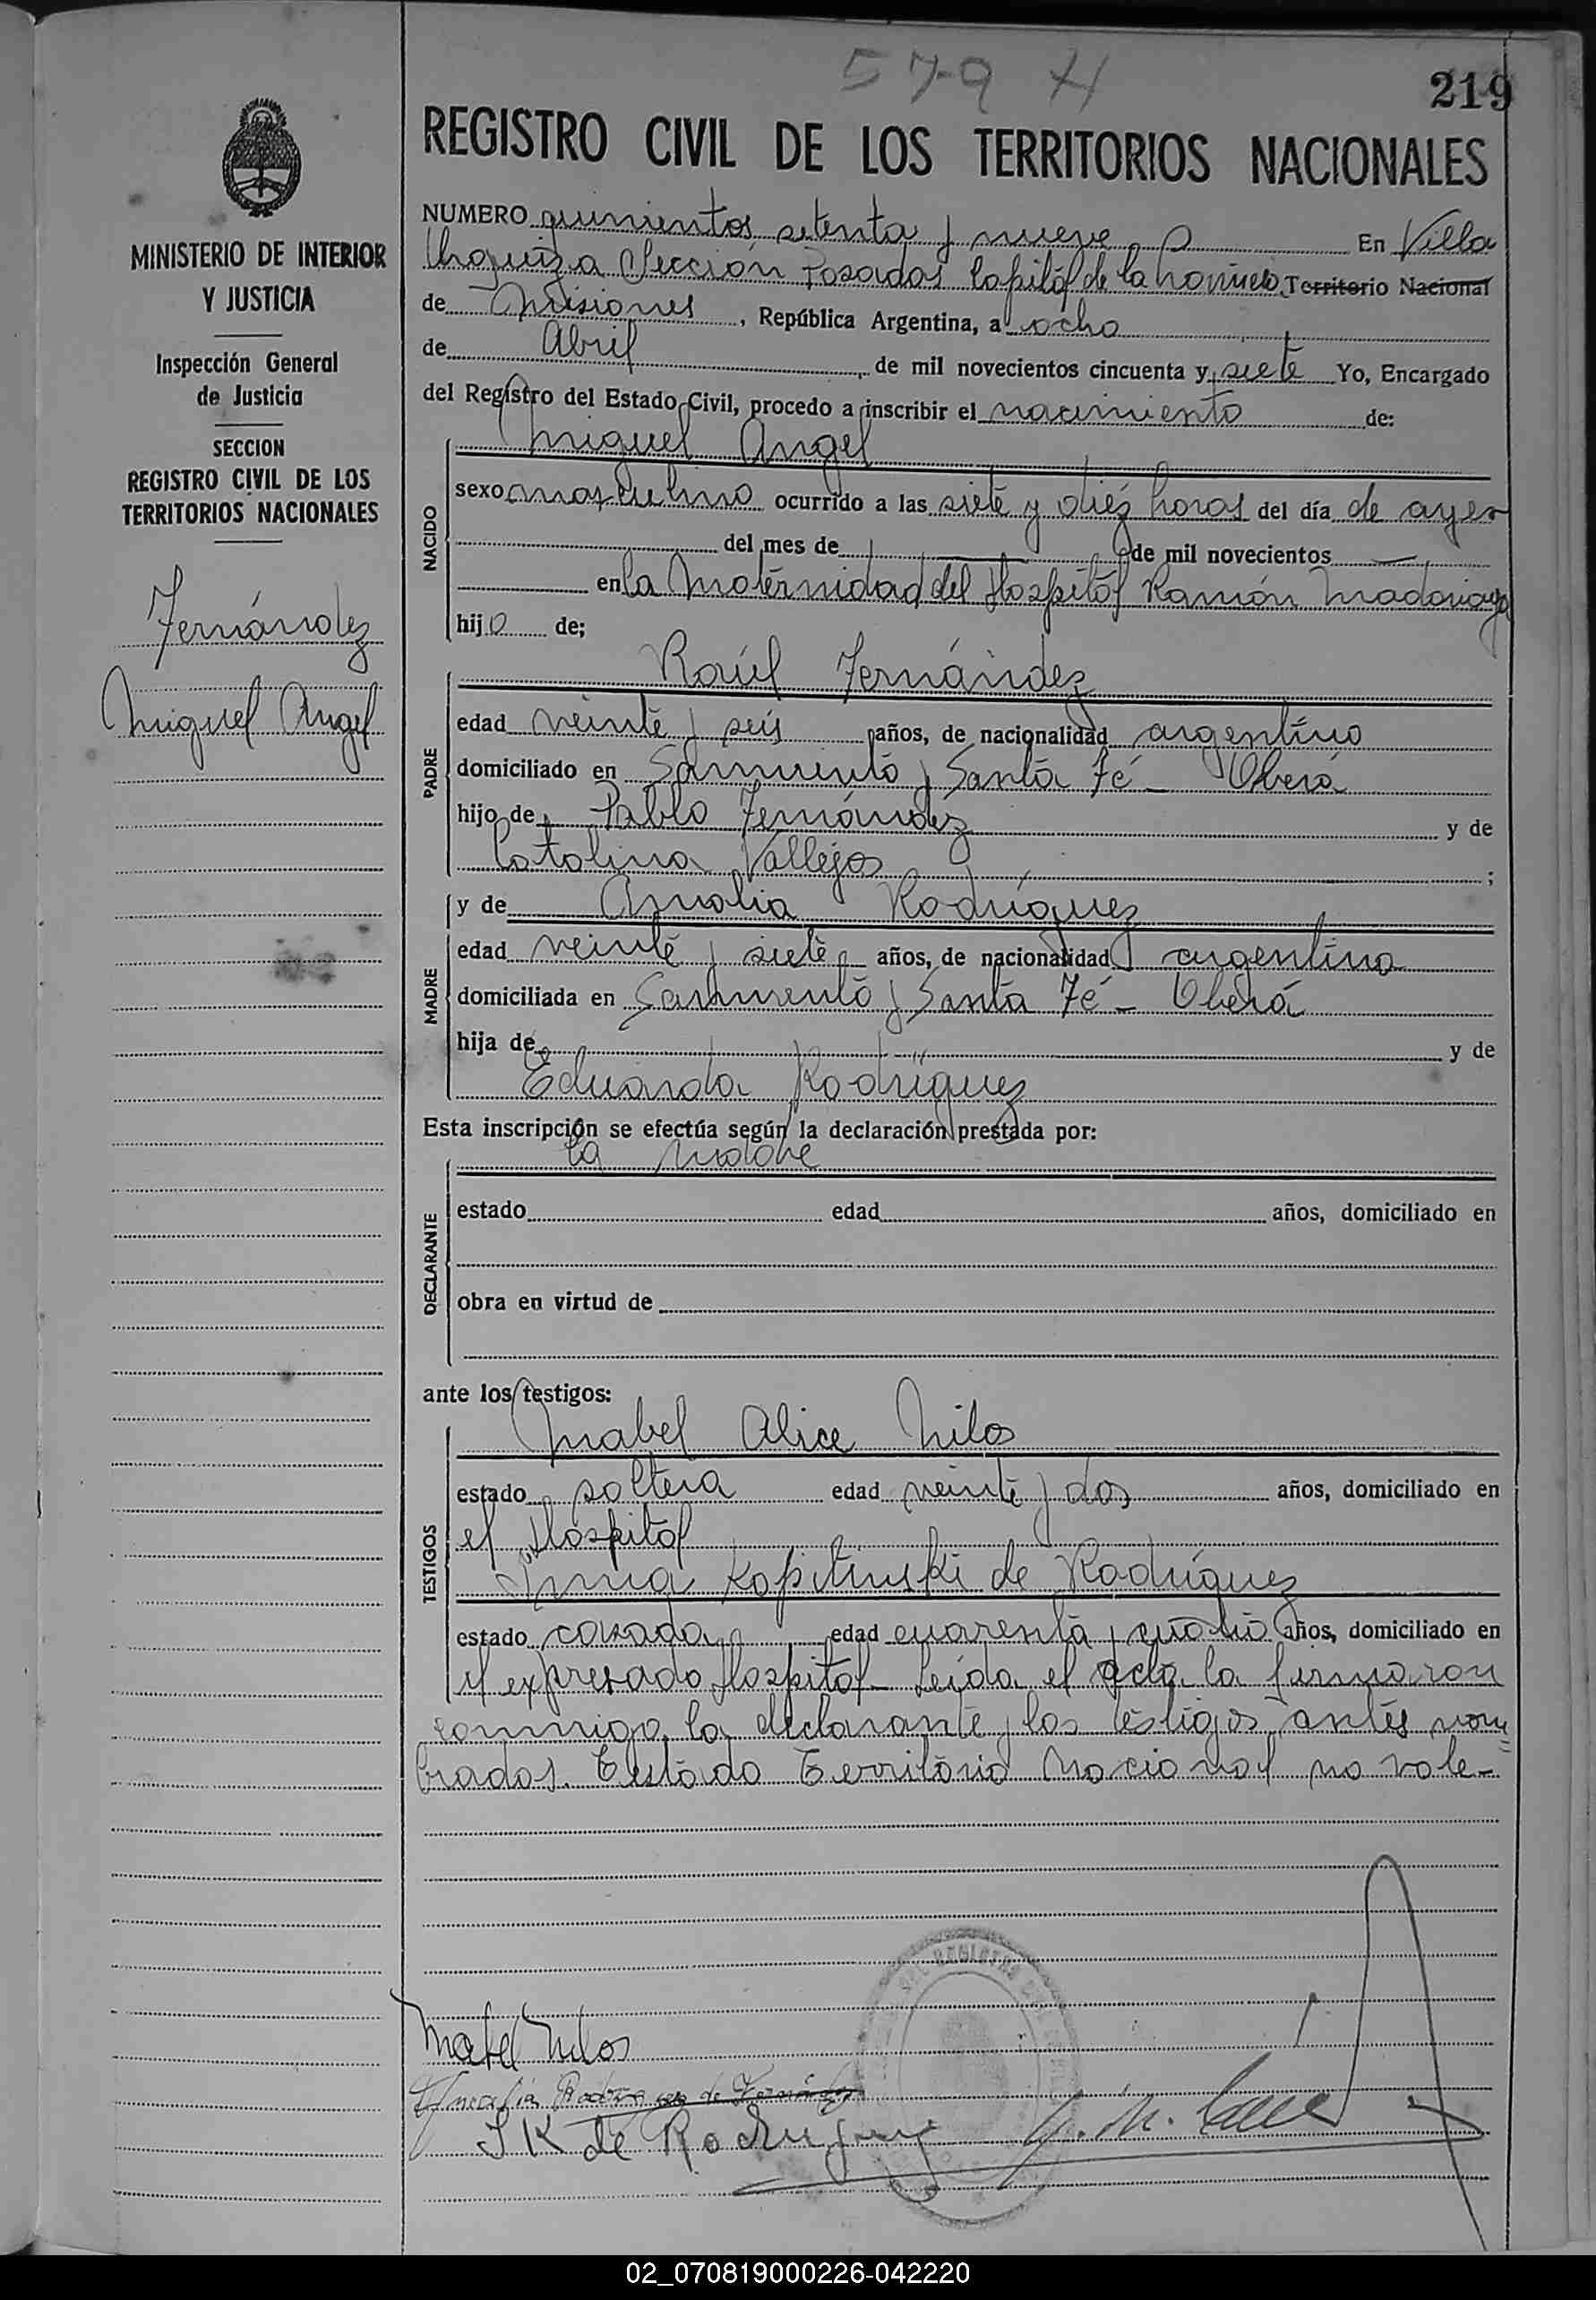 579 H
219
REGISTRO CIVIL DE LOS TERRITORIOS NACIONALES
MINISTERIO DE INTERIOR
Y JUSTICIA
Inspección General
de Justicia
SECCION
REGISTRO CIVIL DE LOS
TERRITORIOS NACIONALES
Fernández
Miguel Angel
NUMERO quinientos setenta y nueve En Villa
Urquiza Sección Posadas Capital de la Provincia Territorio Nacional
de Misiones, República Argentina, a ocho
de Abril de mil novecientos cincuenta y siete Yo, Encargado
del Registro del Estado Civil, procedo a inscribir el nacimiento de:
NACIDO
Miguel Angel
sexo masculino ocurrido a las siete y diez horas del día de ayer
del mes de de mil novecientos
en la Maternidad del Hospital Ramón Madariaga
hijo de;
PADRE
Raúl Fernández
edad veinte y seis años, de nacionalidad argentino
domiciliado en Sarmiento y Santa Fé - Oberá
hijo de Pablo Fernández y de
Catalina Vallejos ;
y de Amalia Rodríguez
MADRE
edad veinte y siete años, de nacionalidad argentina
domiciliada en Sarmiento y Santa Fé - Oberá
hija de y de
Eduarda Rodríguez
Esta inscripción se efectúa según la declaración prestada por:
DECLARANTE
la madre
estado edad años, domiciliado en
obra en virtud de
ante los testigos:
TESTIGOS
Mabel Alice Nilos
estado soltera edad veinte y dos años, domiciliado en
el Hospital
Irma Kopituski de Rodríguez
estado casada edad cuarenta y cuatro años, domiciliado en
el expresado Hospital - Leída el acta la firmaron
conmigo la declarante y los testigos antes nom
brados. Testado Territorio Nacional no vale-
Mabel Nilos
Amalia Rodríguez de Fernández
I K de Rodriguez
02_070819000226-042220